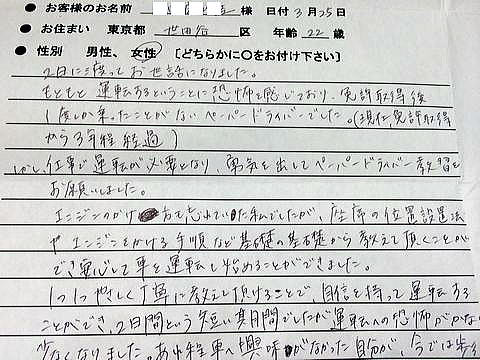 ● お客様のお名前 様 日付 3月25日
● お住まい 東京都 世田谷 区 年齢 22 歳
● 性別 男性、女性 〔どちらかに○をお付け下さい〕
2日に渡ってお世話になりました。
もともと運転するということに恐怖を感じており、免許取得後
1度しか乗ったことがないペーパードライバーでした。(現在、免許取得
から3年程経過)
しかし、仕事で運転が必要となり、勇気を出してペーパードライバー教習を
お願いしました。
エンジンのかけ方も忘れていた私でしたが、座席の位置設置法
やエンジンをかける手順など基礎の基礎から教えて頂くことが
でき安心して車を運転し始めることができました。
1つ1つやさしく丁寧に教えて頂けることで、自信を持って運転する
ことができ、2日間という短い期間でしたが運転への恐怖がかな
少なくなりました。あれ程車へ興味がなかった自分が、今では